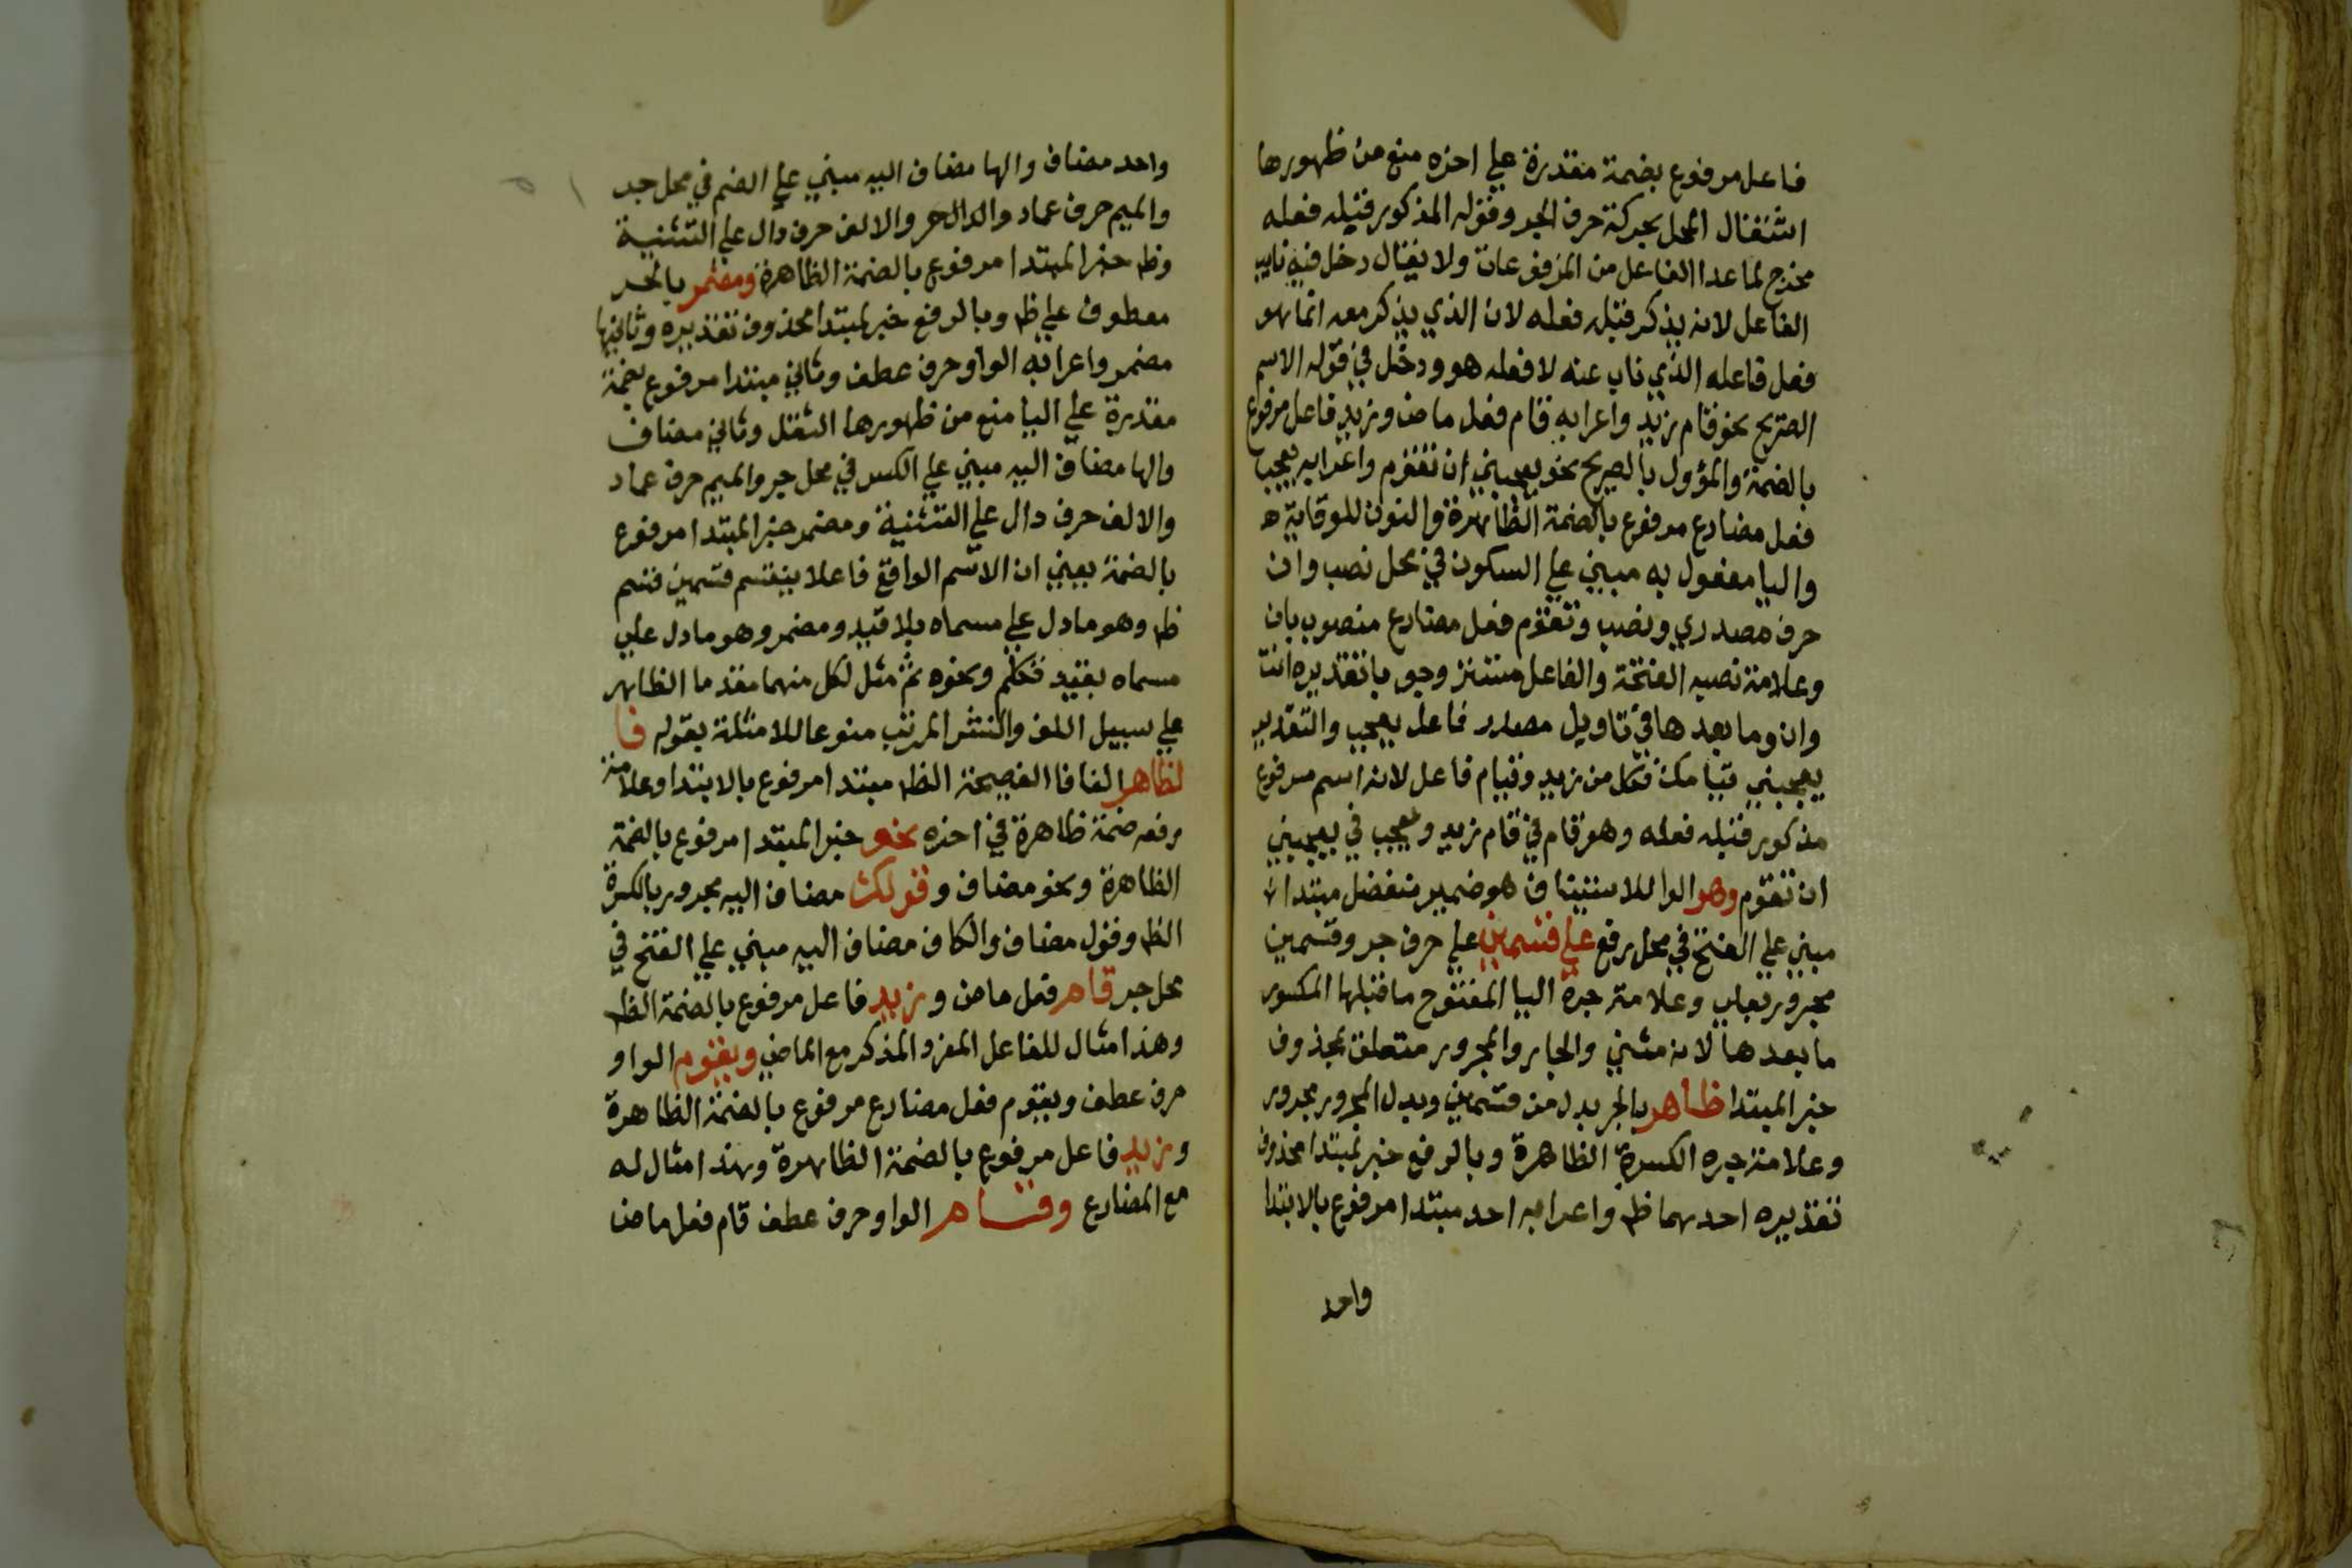 فاعل مرفوع بضمة مقدرة علي اخره منع من ظهورها
اشتغال المحل بحركة حرف الجر وقوله المذكور قبله فعله
مخرج لما عدا الفاعل من المرفوعات ولا يقال دخل فيه نايب
الفاعل لانه يذكر قبله فعله لان الذي يذكر معه انما هو
فعل فاعله الذي ناب عنه لا فعله هو ودخل في قوله الاسم
الصريح نحو قام زيد واعرابه قام فعل ماض وزيد فاعل مرفوع
بالضمة والمؤول بالصريح نحو يعجبني ان تقوم واعرابه يعجب
فعل مضارع مرفوع بالضمة الظاهرة والنون للوقاية
واليا مفعول به مبني علي السكون في محل نصب وان
حرف مصدري ونصب وتقوم فعل مضارع منصوب بان
وعلامة نصبه الفتحة والفاعل مستتر وجوبا تقديره انت
وان وما بعدها في تاويل مصدر فاعل يعجب والتقدير
يعجبني قيامك فكل من زيد وقيام فاعل لانه اسم مرفوع
مذكور قبله فعله وهو قام في قام زيد ويعجب في يعجبني
ان تقوم وهو الواو للاستيناف هو ضمير منفصل مبتدا
مبني علي الفتح في محل رفع علي قسمين علي حرف جر وقسمين
مجرور بعلي وعلامة جره اليا المفتوح ما قبلها المكسور
ما بعدها لانه مثني والجار والمجرور متعلق بمحذوف
خبر المبتدا ظاهر بالجر بدل من قسمين وبدل المجرور مجرور
وعلامة جره الكسرة الظاهرة وبالرفع خبر لمبتدا محذوف
تقديره احدهما ظ واعرابه احد مبتدا مرفوع بالابتدا
واحد
واحد مضاف والها مضاف اليه مبني علي الضم في محل جر
والميم حرف عماد والالف حرف دال علي التثنية
وظ خبر المبتدا مرفوع بالضمة الظاهرة ومضمر بالجر
معطوف علي ظ وبالرفع خبر لمبتدا محذوف تقديره وثانيها
مضمر واعرابه الواو حرف عطف وثاني مبتدا مرفوع بضمة
مقدرة علي اليا منع من ظهورها الثقل وثاني مضاف
والها مضاف اليه مبني علي الكسر في محل جر والميم حرف عماد
والالف حرف دال علي التثنية ومضمر خبر المبتدا مرفوع
بالضمة يعني ان الاسم الواقع فاعلا ينقسم قسمين قسم
ظ وهو ما دل علي مسماه بلا قيد ومضمر وهو ما دل علي
مسماه بقيد تكلم ونحوه ثم مثل لكل منهما مقدما الظاهر
علي سبيل اللف والنشر المرتب منوعا للامثلة بقوله فا
لظاهر الفا فا الفصيحة الظ مبتدا مرفوع بالابتدا وعلامة
رفعه ضمة ظاهرة في اخره نحو خبر المبتدا مرفوع بالضمة
الظاهرة ونحو مضاف وقولك مضاف اليه مجرور بالكسرة
الظ وقول مضاف والكاف مضاف اليه مبني علي الفتح في
محل جر قام فعل ماض وزيد فاعل مرفوع بالضمة الظ
وهذا مثال للفاعل المفرد المذكر مع الماضي ويقوم الواو
حرف عطف ويقوم فعل مضارع مرفوع بالضمة الظاهرة
وزيد فاعل مرفوع بالضمة الظاهرة وهذا مثال له
مع المضارع وقام الواو حرف عطف قام فعل ماض